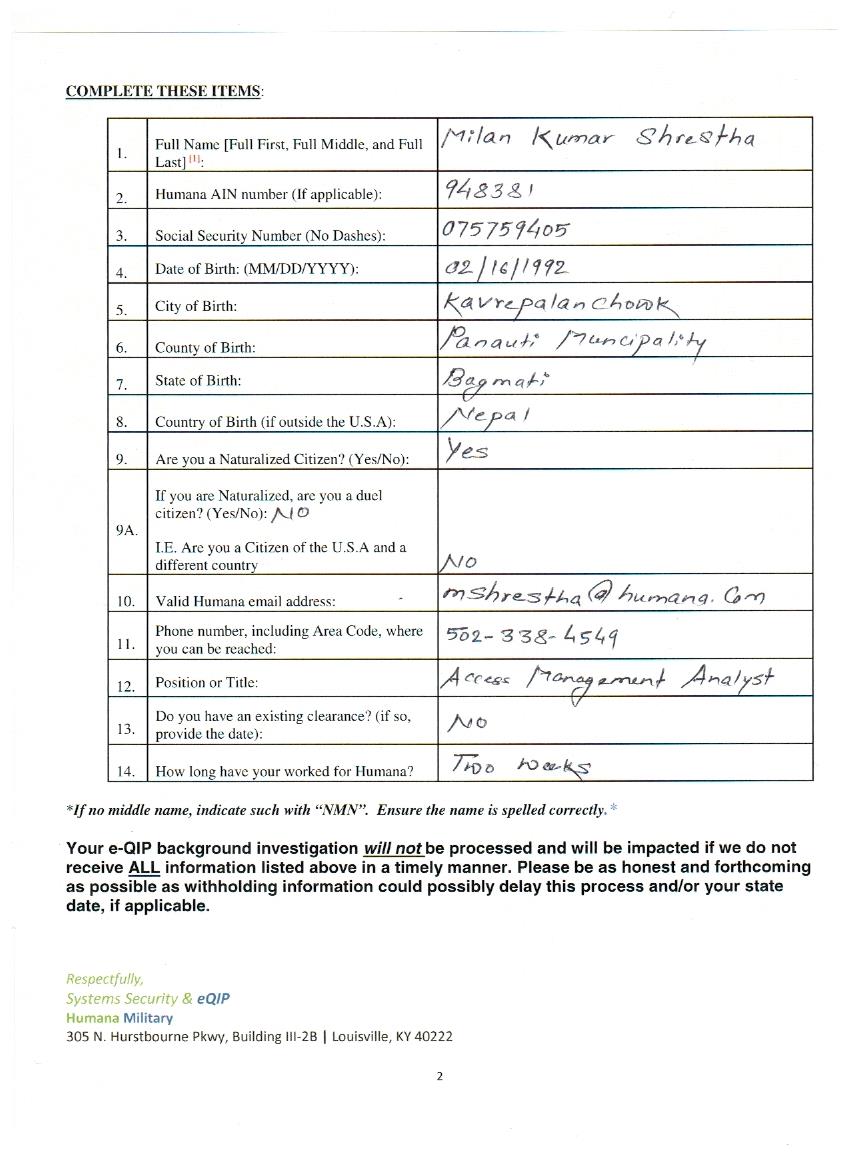 COMPLETE THESE ITEMS:
1. Full Name [Full First, Full Middle, and Full Milan Kumar Shrestha
Last] [1]:
2. Humana AIN number (If applicable): 948381
3. Social Security Number (No Dashes): 075759405
4. Date of Birth: (MM/DD/YYYY): 02/16/1992
5. City of Birth: Kavrepalanchowk
6. County of Birth: Panauti Muncipality
7. State of Birth: Bagmati
8. Country of Birth (if outside the U.S.A): Nepal
9. Are you a Naturalized Citizen? (Yes/No): Yes
9A. If you are Naturalized, are you a duel
citizen? (Yes/No): NO
I.E. Are you a Citizen of the U.S.A and a
different country NO
10. Valid Humana email address: - mshrestha@humana.Com
11. Phone number, including Area Code, where 502-338-4549
you can be reached:
12. Position or Title: Access Management Analyst
13. Do you have an existing clearance? (if so, NO
provide the date):
14. How long have your worked for Humana? Two weeks
*If no middle name, indicate such with “NMN”. Ensure the name is spelled correctly. *
Your e-QIP background investigation will not be processed and will be impacted if we do not
receive ALL information listed above in a timely manner. Please be as honest and forthcoming
as possible as withholding information could possibly delay this process and/or your state
date, if applicable.
Respectfully,
Systems Security & eQIP
Humana Military
305 N. Hurstbourne Pkwy, Building III-2B | Louisville, KY 40222
2